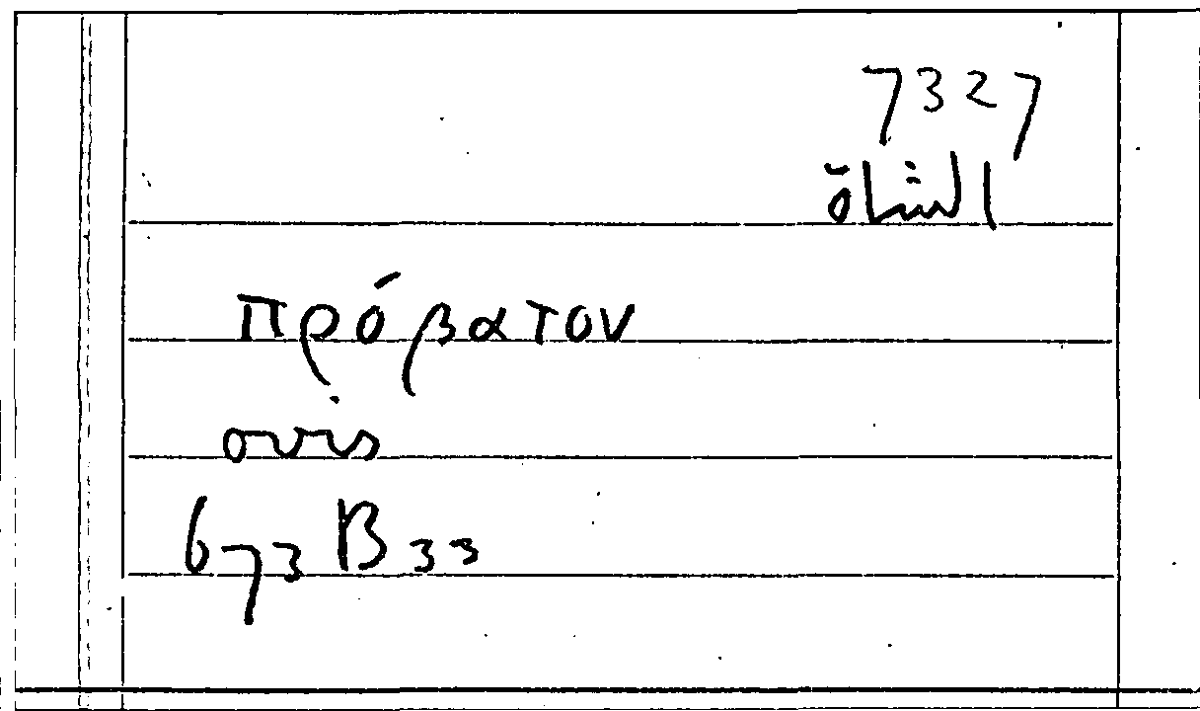 7327
الشاة
πρόβατον
ovis
673 B 33